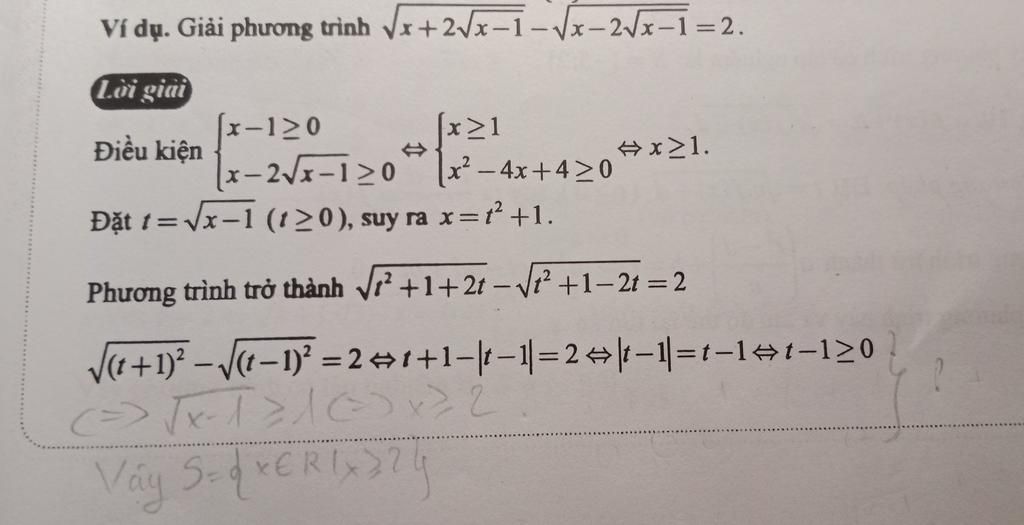 Ví dụ. Giải phương trình √(x+2√(x−1)) − √(x−2√(x−1)) = 2.
Lời giải
Điều kiện {x−1≥0; x−2√(x−1)≥0 ⇔ {x≥1; x²−4x+4≥0 ⇔ x≥1.
Đặt t=√(x−1) (t≥0), suy ra x=t²+1.
Phương trình trở thành √(t²+1+2t) − √(t²+1−2t) = 2
√((t+1)²) − √((t−1)²) = 2 ⇔ t+1−|t−1| = 2 ⇔ |t−1| = t−1 ⇔ t−1≥0 } ?
<=> √(x-1) ≥ 1 <=> x ≥ 2.
Vậy S={x∈R|x≥2}